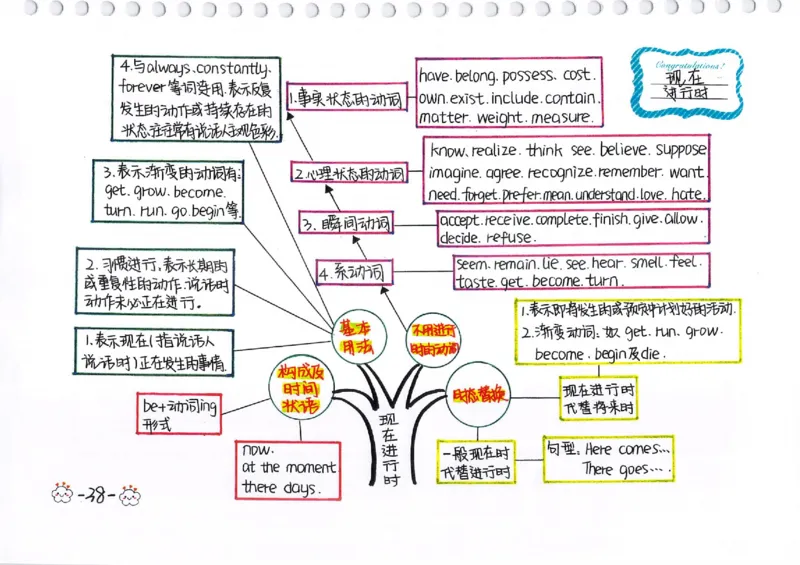 Congratulations!
现在
进行时
4.与always、constantly、
forever等词连用、表示反复
发生的动作或持续存在的
状态、往往带有说话人主观色彩.
3.表示渐变的动词有:
get.grow.become.
turn.run.go.begin等.
2.习惯进行、表示长期的
或重复性的动作、说话时
动作未必正在进行。
1.表示现在(指说话人
说话时)正在发生的事情.
基本
用法
1.事实状态的动词
have.belong.possess.cost.
own.exist.include.contain.
matter.weight.measure.
2.心理状态的动词
know.realize.think see.believe.suppose
imagine.agree.recognize.remember.want.
need.forget.prefer.mean.understand.love.hate.
3.瞬间动词
accept.receive.complete.finish.give.allow.
decide.refuse.
4.系动词
seem.remain.lie.see.hear.smell.feel.
taste.get.become.turn.
不用进行
时的动词
1.表示即将发生的或预定中计划好的活动.
2.渐变动词:如get.run.grow.
become.begin及die.
现在进行时
代替将来时
时态替换
一般现在时
代替进行时
句型:Here comes...
There goes...
构成及
时间
状语
be+动词ing
形式
now.
at the moment
there days.
现在进行时
-38-